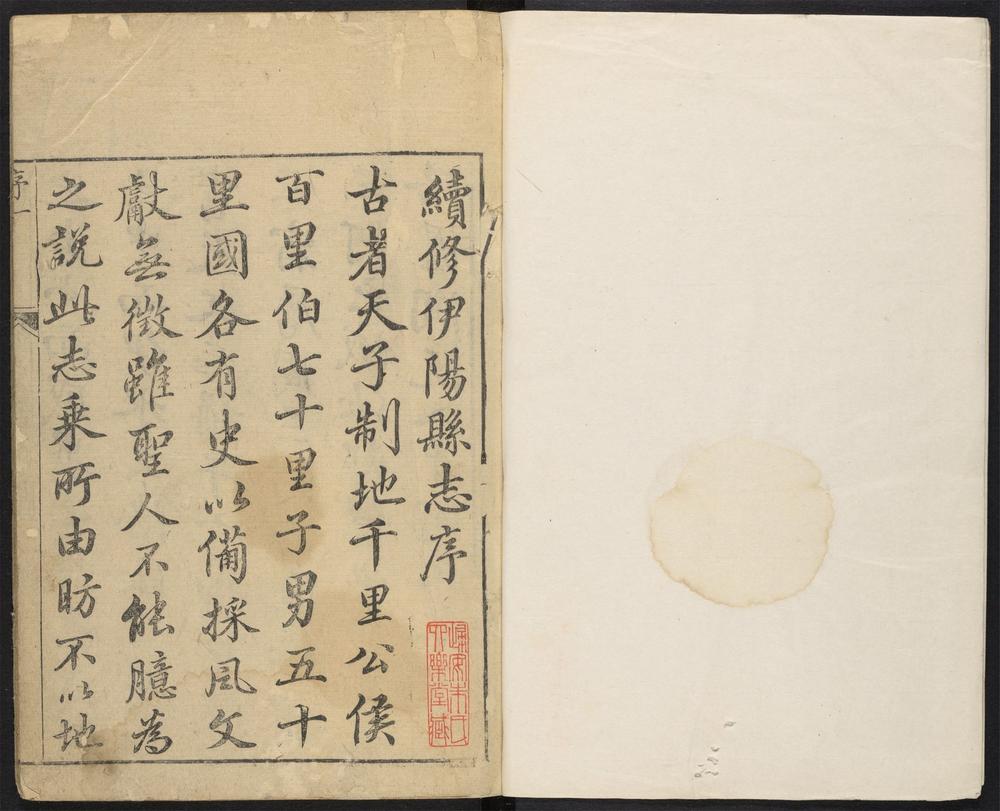 續修伊陽縣志序
古者天子制地千里公侯
百里伯七十里子男五十
里國各有史以備採風文
獻無徴雖聖人不能臆為
之説此志乗所由昉不以地
序一
歸安朱氏
六樂堂藏